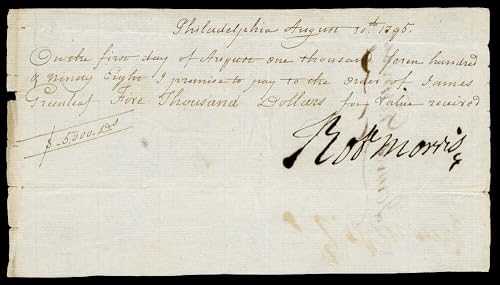 Philadelphia August 10.th 1795.
On the first day of August one thousand Seven hundred
& ninety Eight I promise to pay to the order of James
Greenleaf Five Thousand Dollars for value received
$ 5,000 Drs
Robt Morris